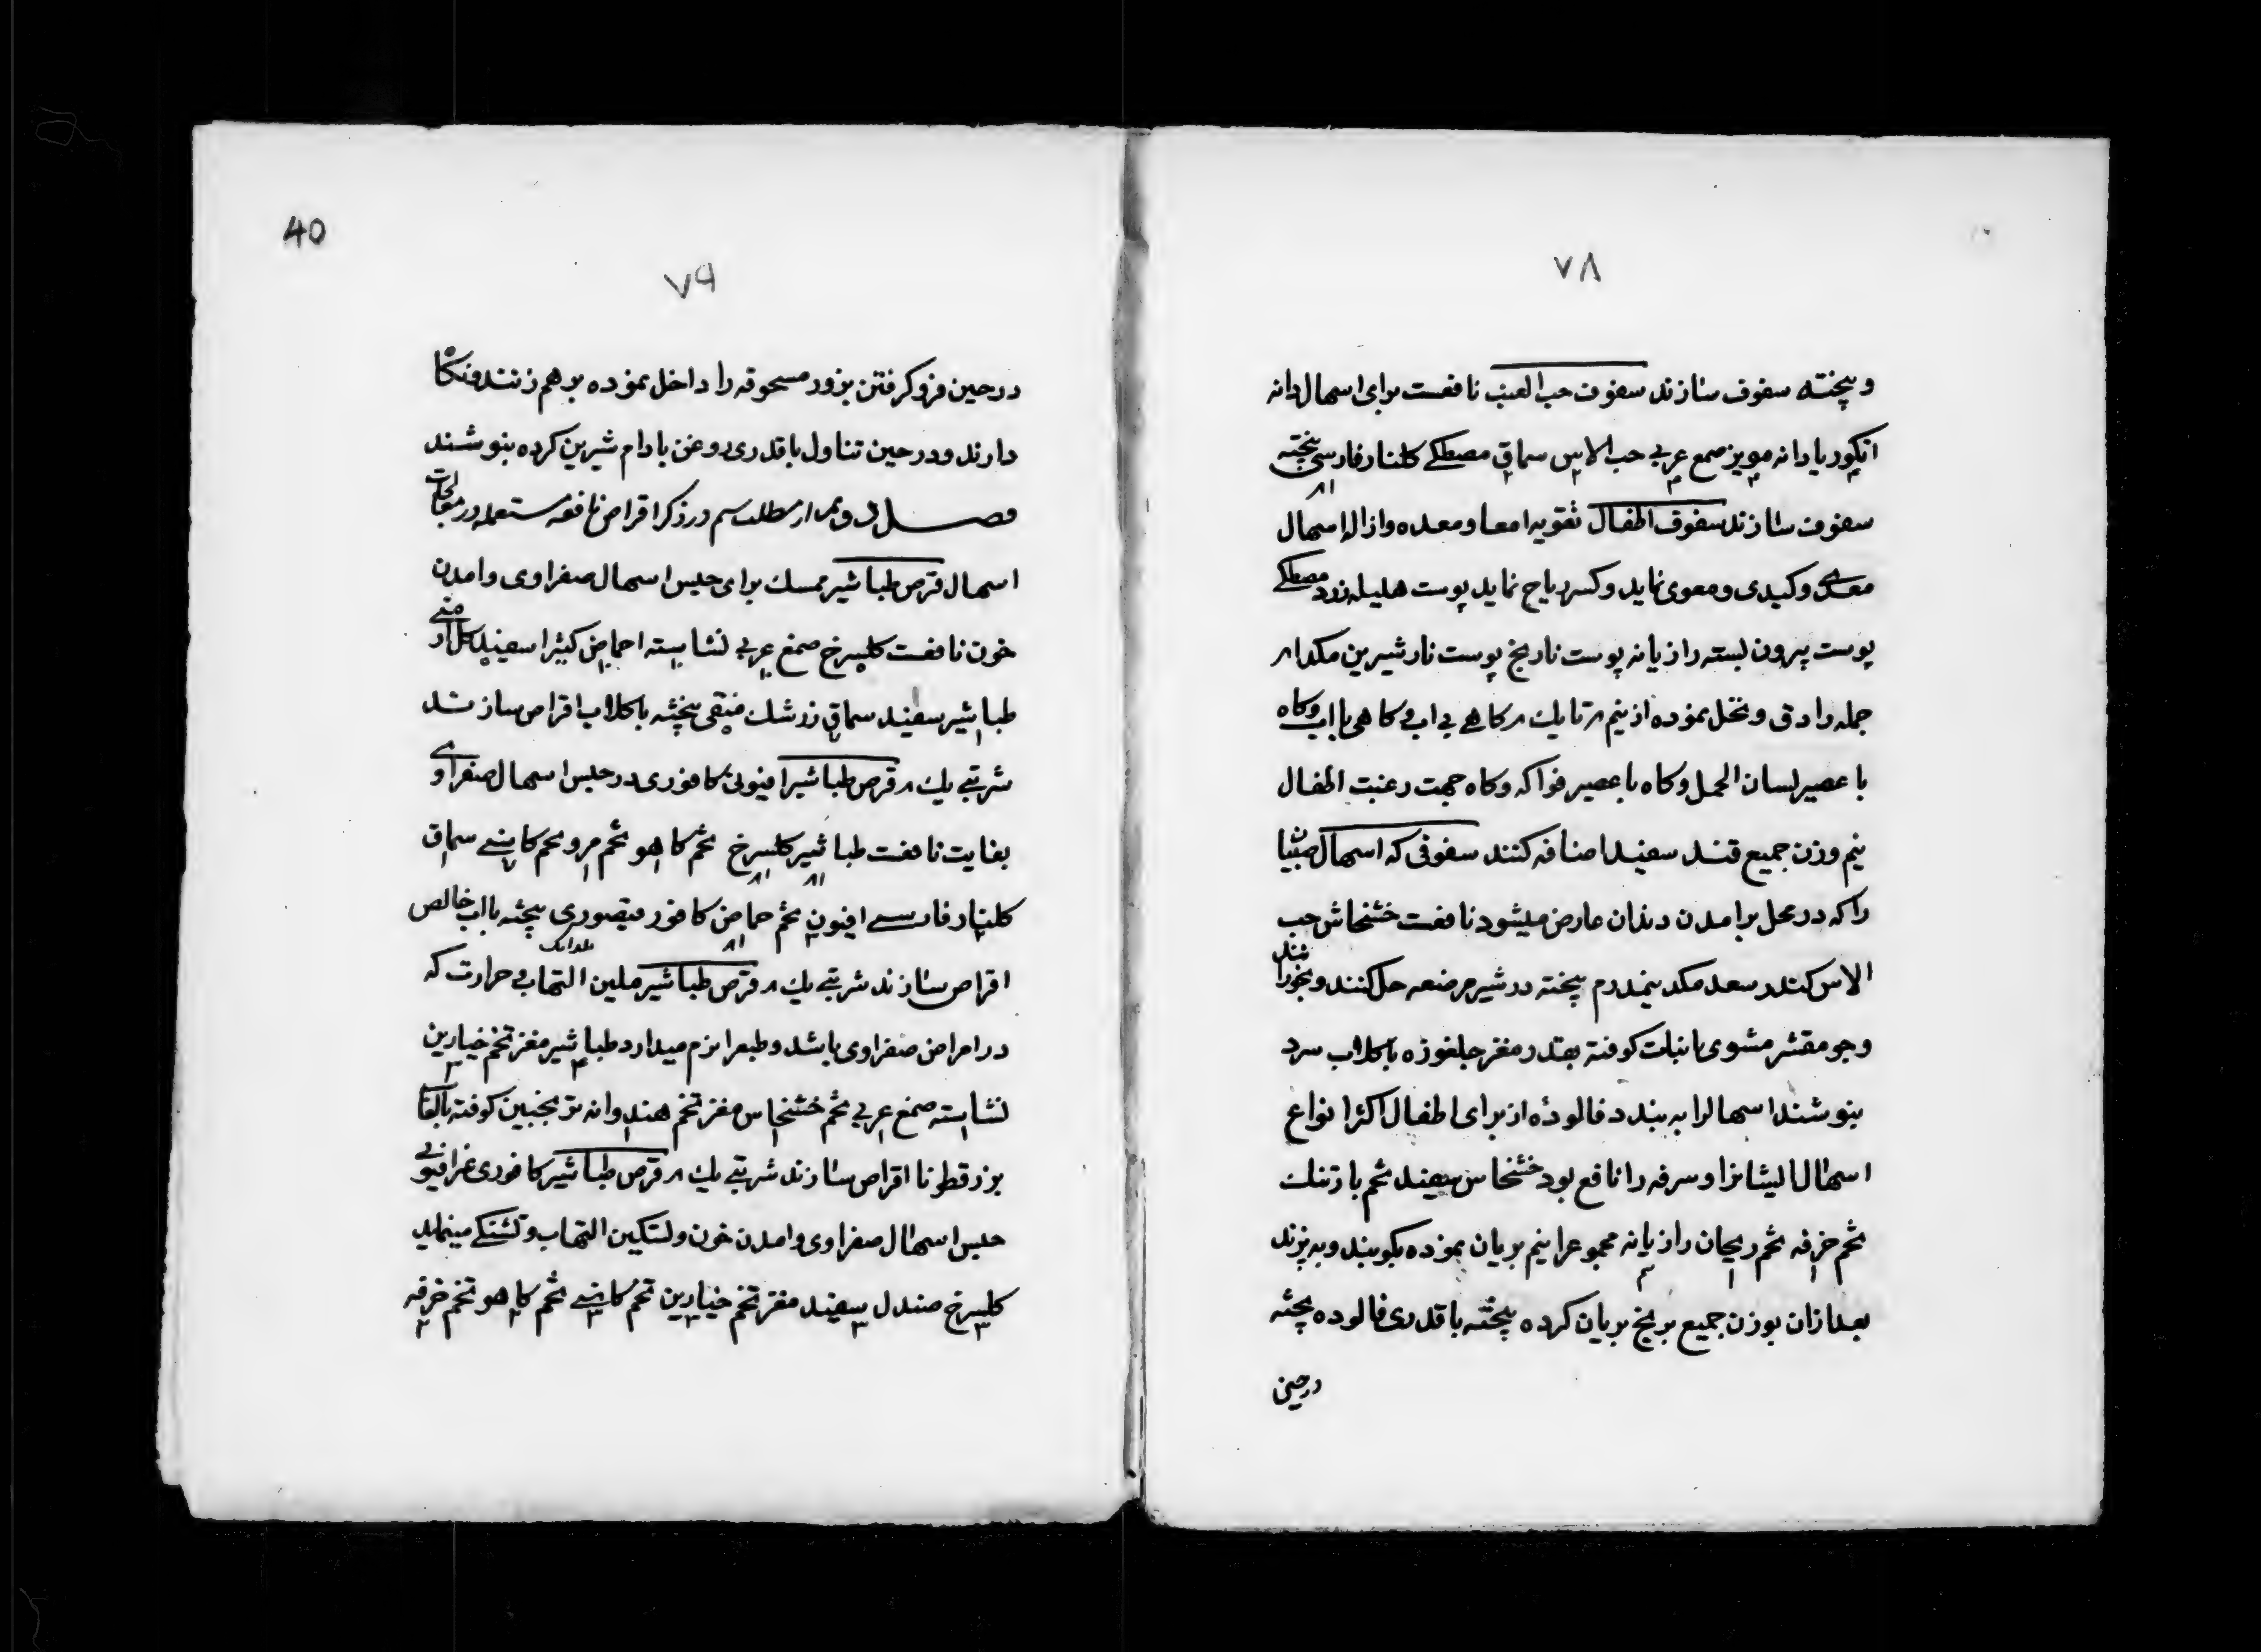 ۷۸
وبیخته سفوف سازند سفوف حب العنب نافعست برای اسهال دانه
انگور یا دانه مویز صمغ عربی حب الاس سماق مصطکے کلنار فارسی بیخته
سفوف سازند سفوف اطفال تقویه امعا و معده و ازاله اسهال
معدی و کبدی و معوی نماید و کسر ریاح نماید پوست هلیله زرد مصطکے
پوست بیرون پسته رازیانه پوست نارنج پوست نار شیرین مکد ۱ م
جمله را دق و نخل نموده از نیم م تا یک م کاهے بی اب و کاهی با اب و کاه
با عصیر لسان الحمل و کاه با عصیر فواکه و کاه جهت رغبت اطفال
نیم وزن جمیع قند سفید اضافه کنند سفوفی که اسهال صبیان
را که در محل برامدن دندان عارض میشود نافعست خشخاش حب
الاس کندر سعد مکد نیمدرم بیخته در شیر مرضعه حل کنند و بخورانند
و جو مقشر مشوی با نبات کوفته بقدر مغز جلغوزه با کلاب سرد
بنوشند اسهالرا به بندد فالوده از برای اطفال اکثر انواع
اسهال ایشانرا و سرفه را نافع بود خشخاش سفید تخم بارتنک
تخم خرفه تخم ریحان رازیانه مجموعرا نیم بریان نموده بکوبند و به پزند
بعد ازان بوزن جمیع برنج بریان کرده بیخته با قدری فالوده پخته
درحین
40
۷۹
درحین فرو کرفتن بزور مسحوقه را داخل نموده بر هم زنند و نکاه
دارند و در حین تناول با قدری روغن بادام شیرین کرده بنوشند
فصل دویم از مطلب سیم در ذکر اقراص نافعه مستعمله در معالجات
اسهال قرص طباشیر ممسک برای حبس اسهال صفراوی و امدن
خون نافعست کلسرخ صمغ عربی نشاسته احماض کثیرا سفید کل ارمنی
طباشیر سفید سماق زرشک منقی بیخته با کلاب اقراص سازند
شربتے یک م قرص طباشیر افیونی کافوری در حبس اسهال صفراوی
بغایت نافعست طباشیر کلسرخ تخم کاهو تخم مرو تخم کاسنے سماق
کلنار فارسے افیون تخم حماض کافور قیصوری بیخته با اب خالص
اقراص سازند شربتے یک م قرص طباشیر ملین التهاب و حرارت که
در امراض صفراوی باشد و طبعرا نرم میدارد طباشیر مغز تخم خیارین
نشاسته صمغ عربی تخم خشخاش مغز تخم هندوانه ترنجبین کوفته بالعاب
بزرقطونا اقراص سازند شربتے یک م قرص طباشیر کافوری غیر افیونی
حبس اسهال صفراوی و امدن خون و تسکین التهاب و تشنکے مینماید
کلسرخ صندل سفید مغز تخم خیارین تخم کاسنے تخم کاهو تخم خرفه